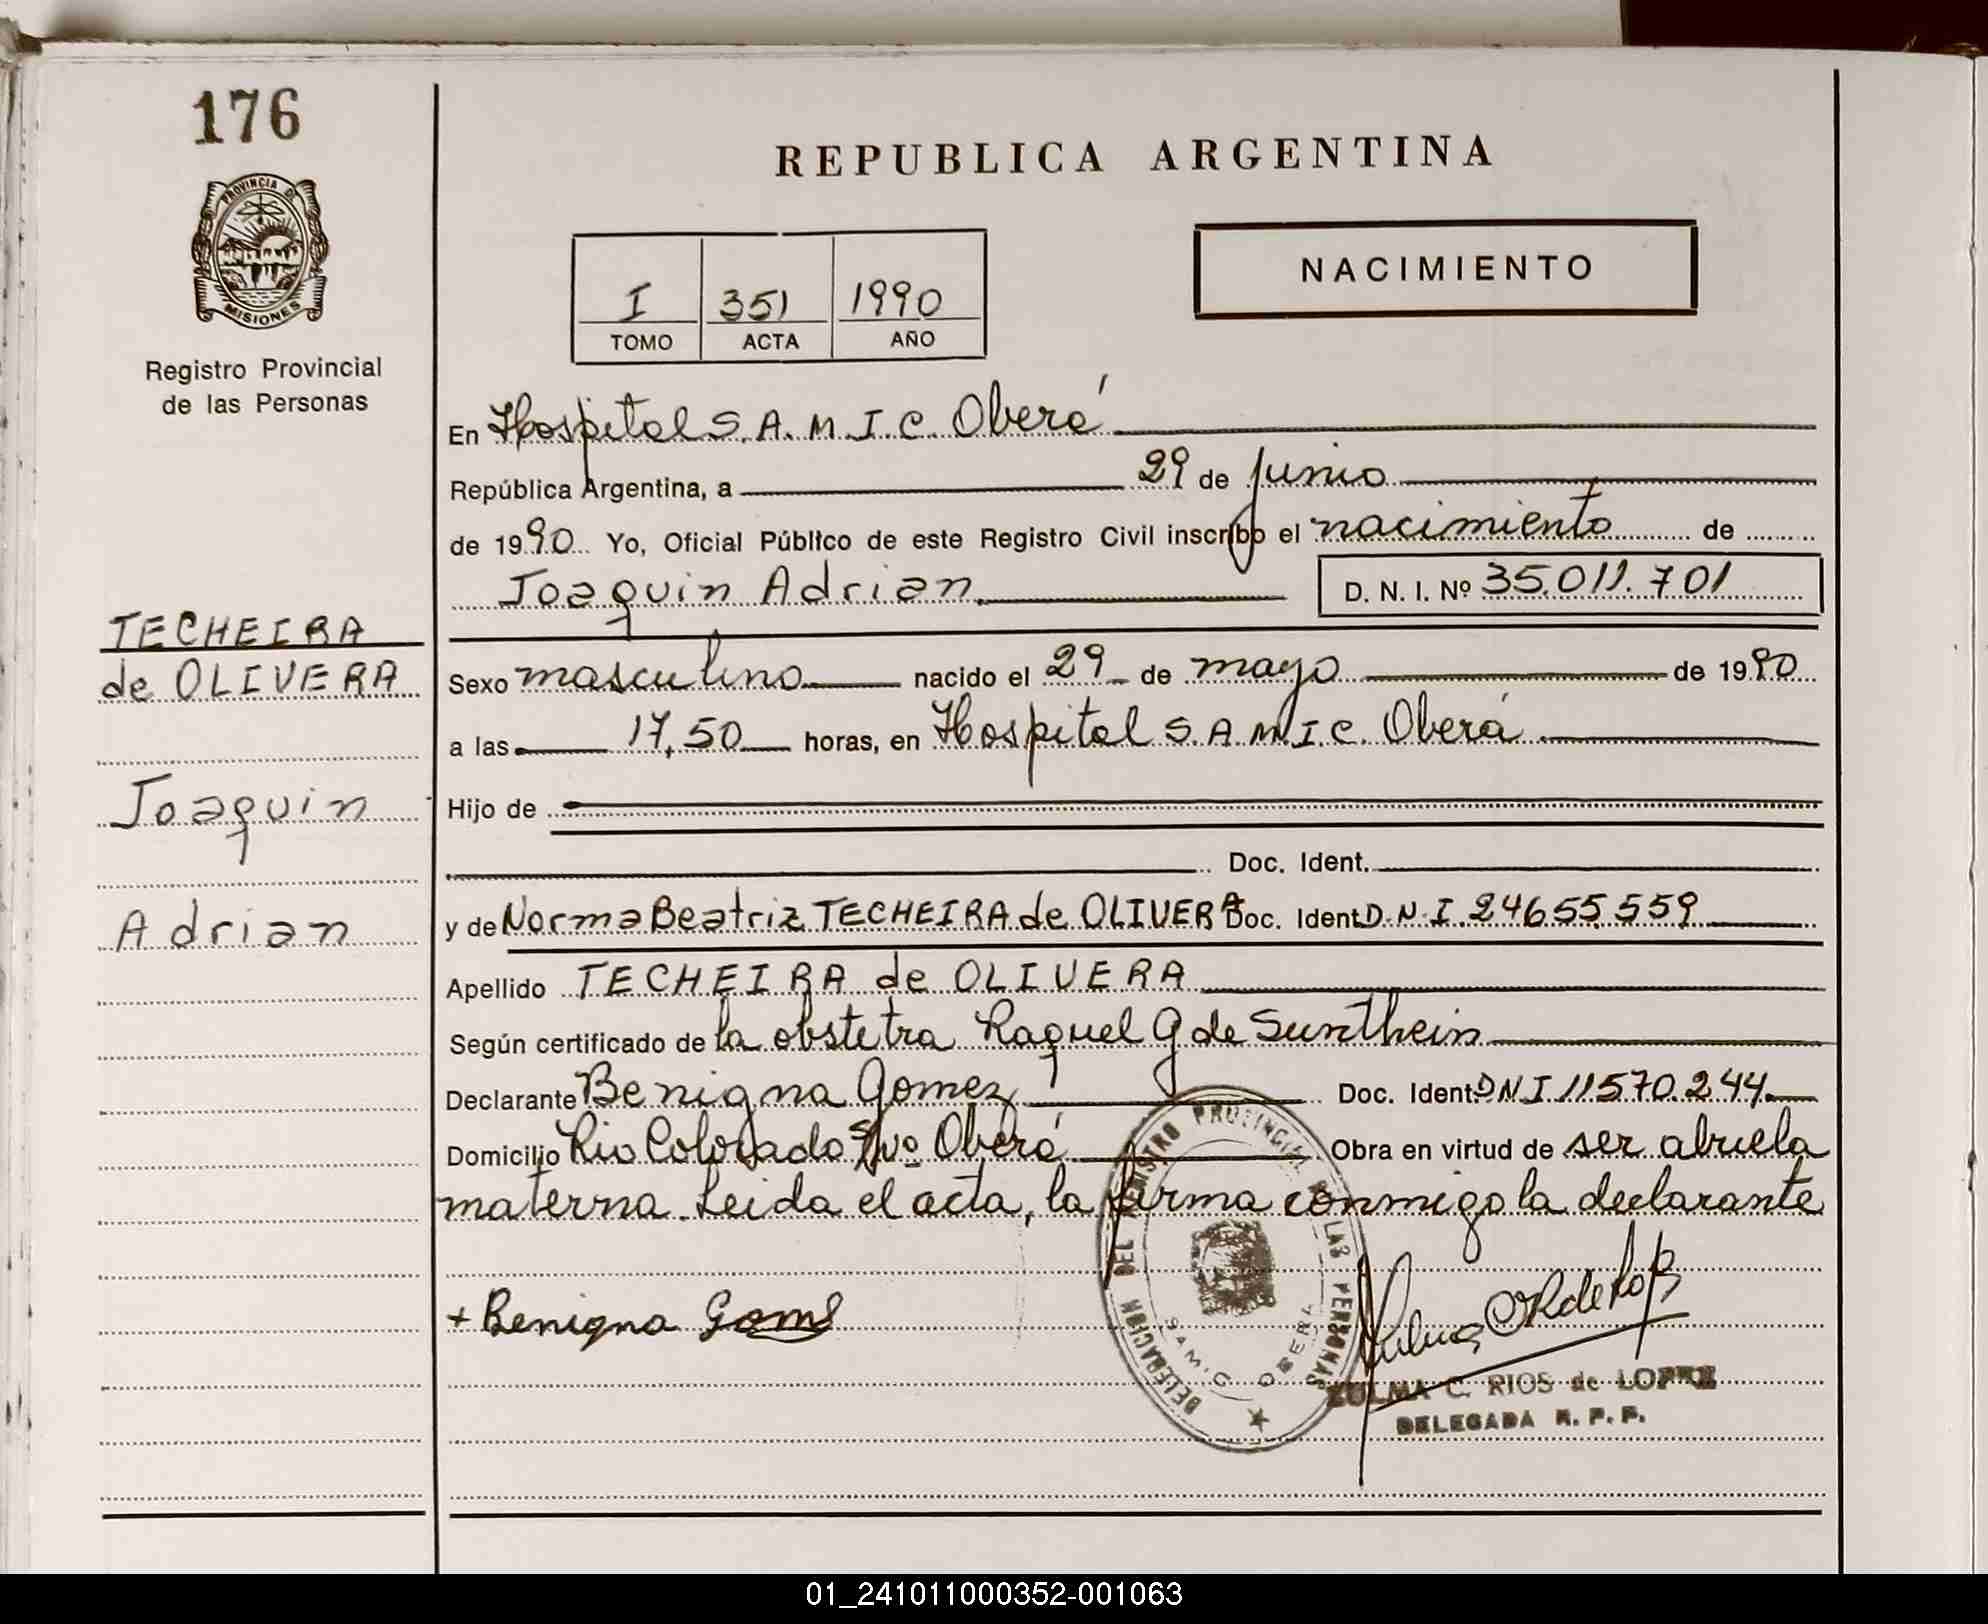 176
PROVINCIA DE
MISIONES
Registro Provincial
de las Personas
TECHEIRA
de OLIVERA
Joaquin
Adrian
REPUBLICA ARGENTINA
I 351 1990
TOMO ACTA AÑO
NACIMIENTO
En Hospital S.A.M.I.C. Oberá
República Argentina, a 29 de junio
de 1990 Yo, Oficial Público de este Registro Civil inscribo el nacimiento de
Joaquin Adrian D. N. I. Nº 35.011.701
Sexo masculino nacido el 29 de mayo de 1990
a las 17,50 horas, en Hospital S.A.M.I.C. Oberá
Hijo de
Doc. Ident.
y de Norma Beatriz TECHEIRA de OLIVERA Doc. Ident D.N.I. 24655.559
Apellido TECHEIRA de OLIVERA
Según certificado de la obstetra Raquel G de Sunthein
Declarante Benigna Gomez Doc. Ident. DNI 11570.244
Domicilio Rio Colorado s/nº Oberá Obra en virtud de ser abuela
materna. Leida el acta, la firma conmigo la declarante
+ Benigna Gome
DELEGACION DEL REGISTRO PROVINCIAL DE LAS PERSONAS
SAMIC OBERA
ZULMA C. RIOS de LOPEZ
DELEGADA R. P. P.
01_241011000352-001063